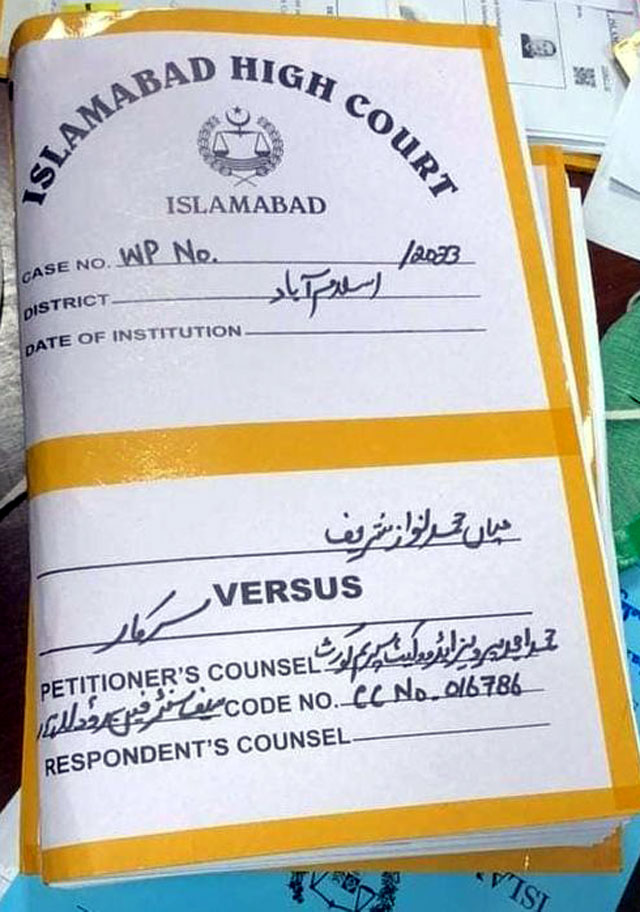 ISLAMABAD HIGH COURT
ISLAMABAD
CASE NO. WP No. /2023
DISTRICT اسلام آباد
DATE OF INSTITUTION
میاں محمد نواز شریف
VERSUS
سرکار
PETITIONER'S COUNSEL محمد امجد پرویز ایڈووکیٹ سپریم کورٹ
CODE NO. CC No. 016786
RESPONDENT'S COUNSEL